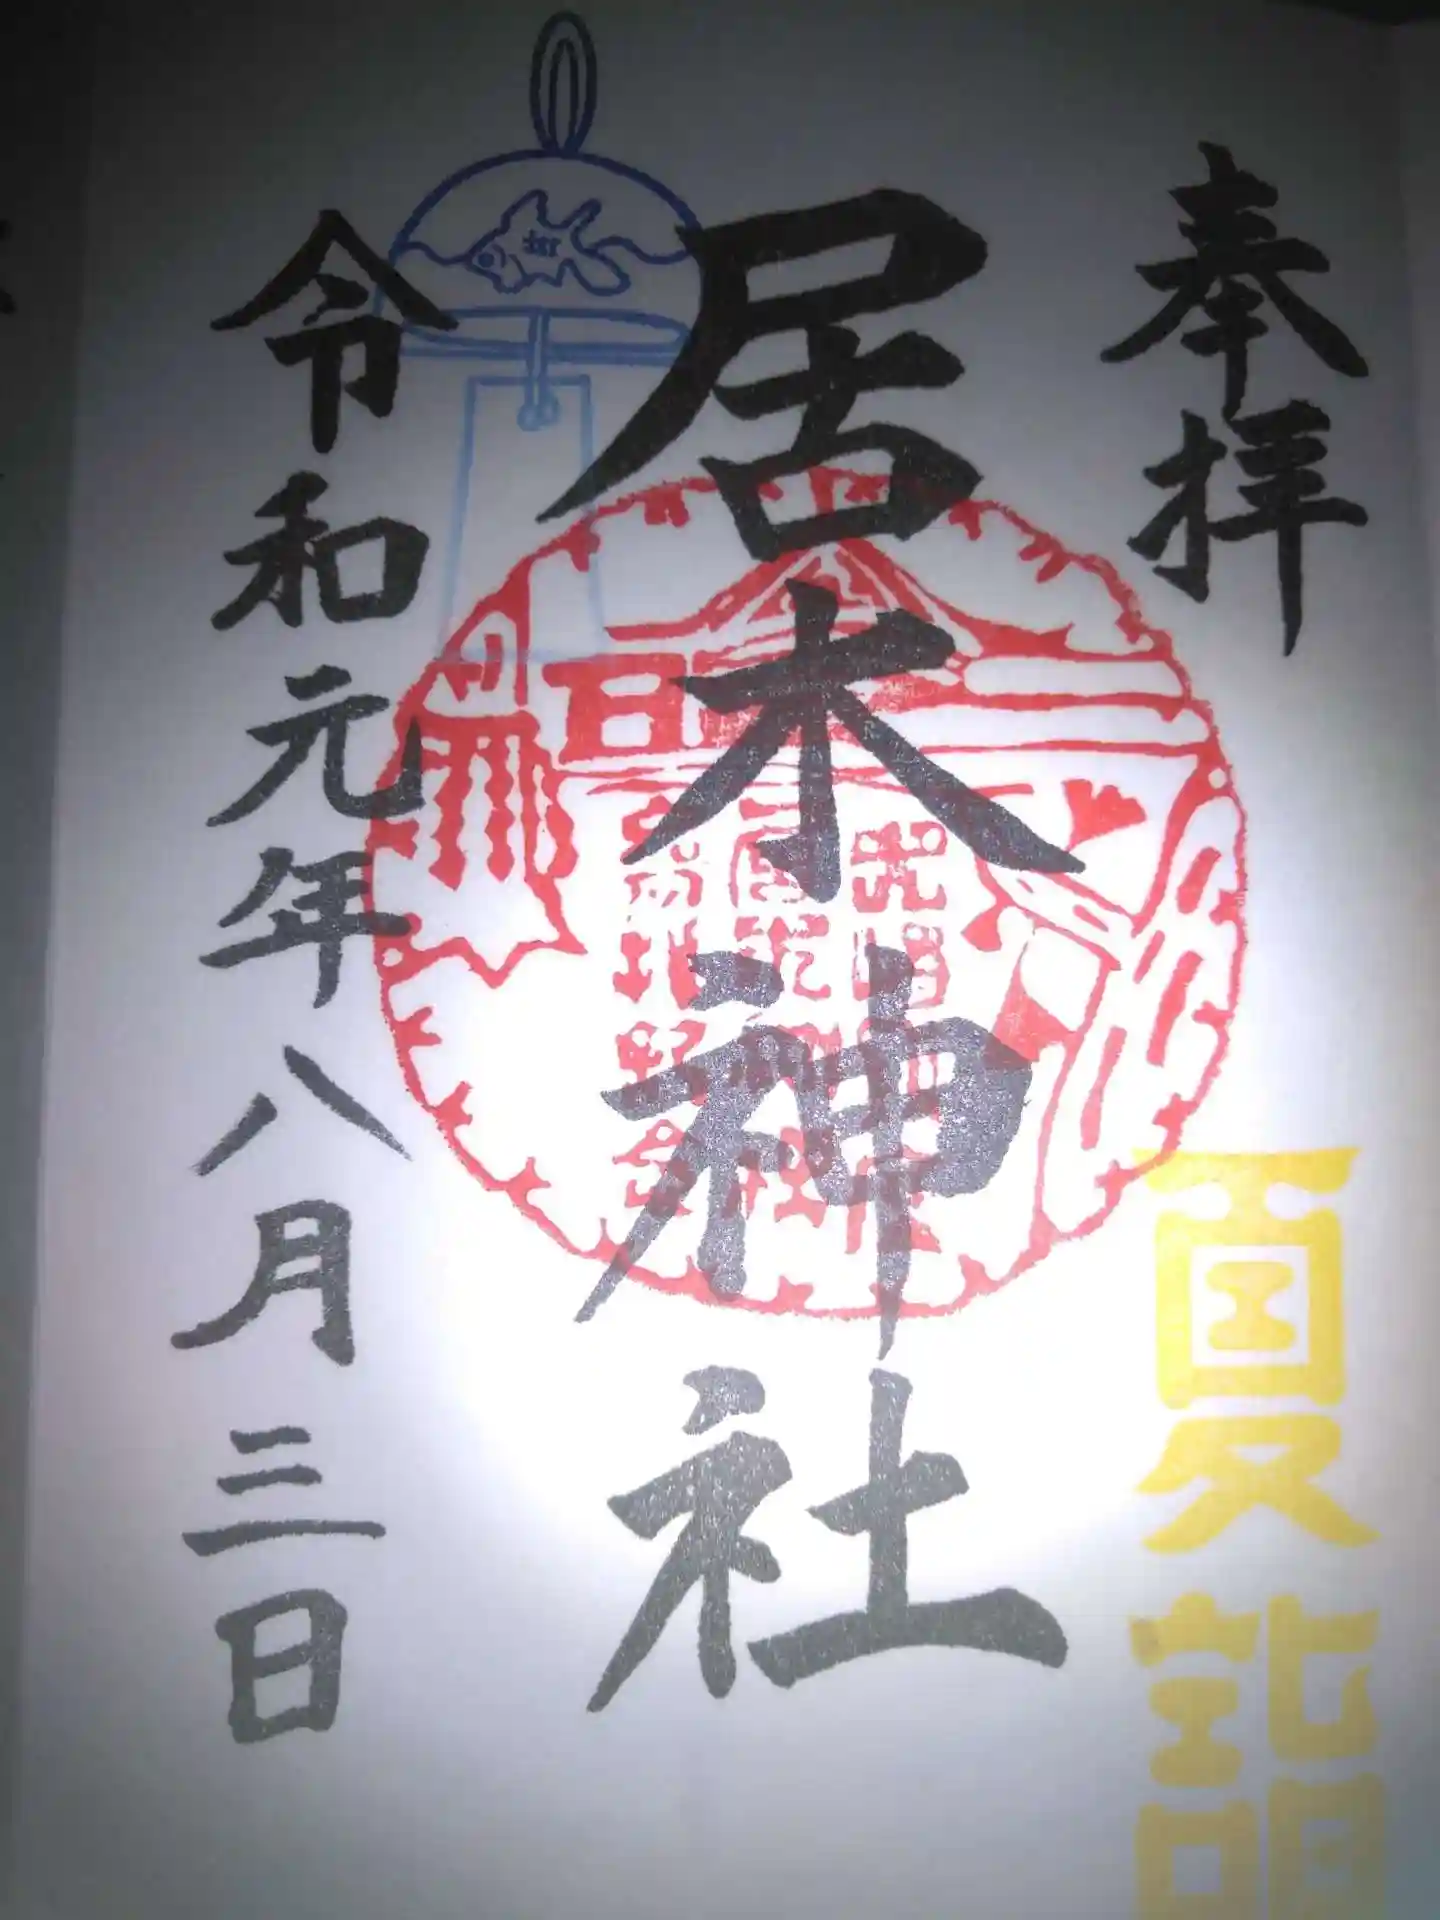 奉拝
夏詣
居木神社
令和元年八月三日